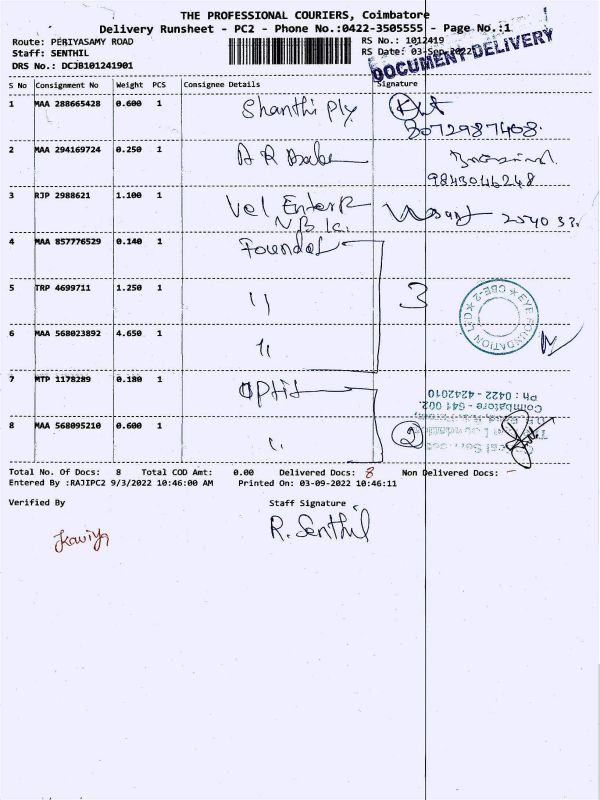 THE PROFESSIONAL COURIERS, Coimbatore
Delivery Runsheet - PC2 - Phone No.:0422-3505555 - Page No.:1
Route: PERIYASAMY ROAD
RS No.: 1012419
Staff: SENTHIL
RS Date: 03-Sep-2022
DOCUMENT DELIVERY
DRS No.: DCJB101241901
S No Consignment No Weight PCS Consignee Details Signature
1 MAA 288665428 0.600 1 Shanthi Ply
8072987408.
2 MAA 294169724 0.250 1 A R
9843046248
3 RJP 2988621 1.100 1 Vel Enter
4 MAA 857776529 0.140 1 Foundat
5 TRP 4699711 1.250 1 " 3
EYE FOUNDATION CBE-2
6 MAA 568023892 4.650 1 "
7 MTP 1178289 0.180 1 Optic
Coimbatore - 641 002.
Ph : 0422 - 4242010
8 MAA 568095210 0.600 1 " 2
Total No. Of Docs: 8 Total COD Amt: 0.00 Delivered Docs: 8 Non Delivered Docs: -
Entered By :RAJIPC2 9/3/2022 10:46:00 AM Printed On: 03-09-2022 10:46:11
Verified By Staff Signature
Kaviya R. Senthil